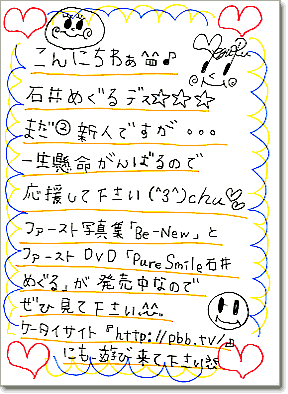 こんにちわぁ^^♪
石井めぐるデス☆☆☆
まだ②新人ですが・・・
一生懸命がんばるので
応援して下さい(^3^)chu♡
ファースト写真集「Be-New」と
ファーストDVD「Pure Smile石井
めぐる」が発売中なので
ぜひ見て下さい^^
ケータイサイト『http://pbb.tv/』
にも遊び来て下さい